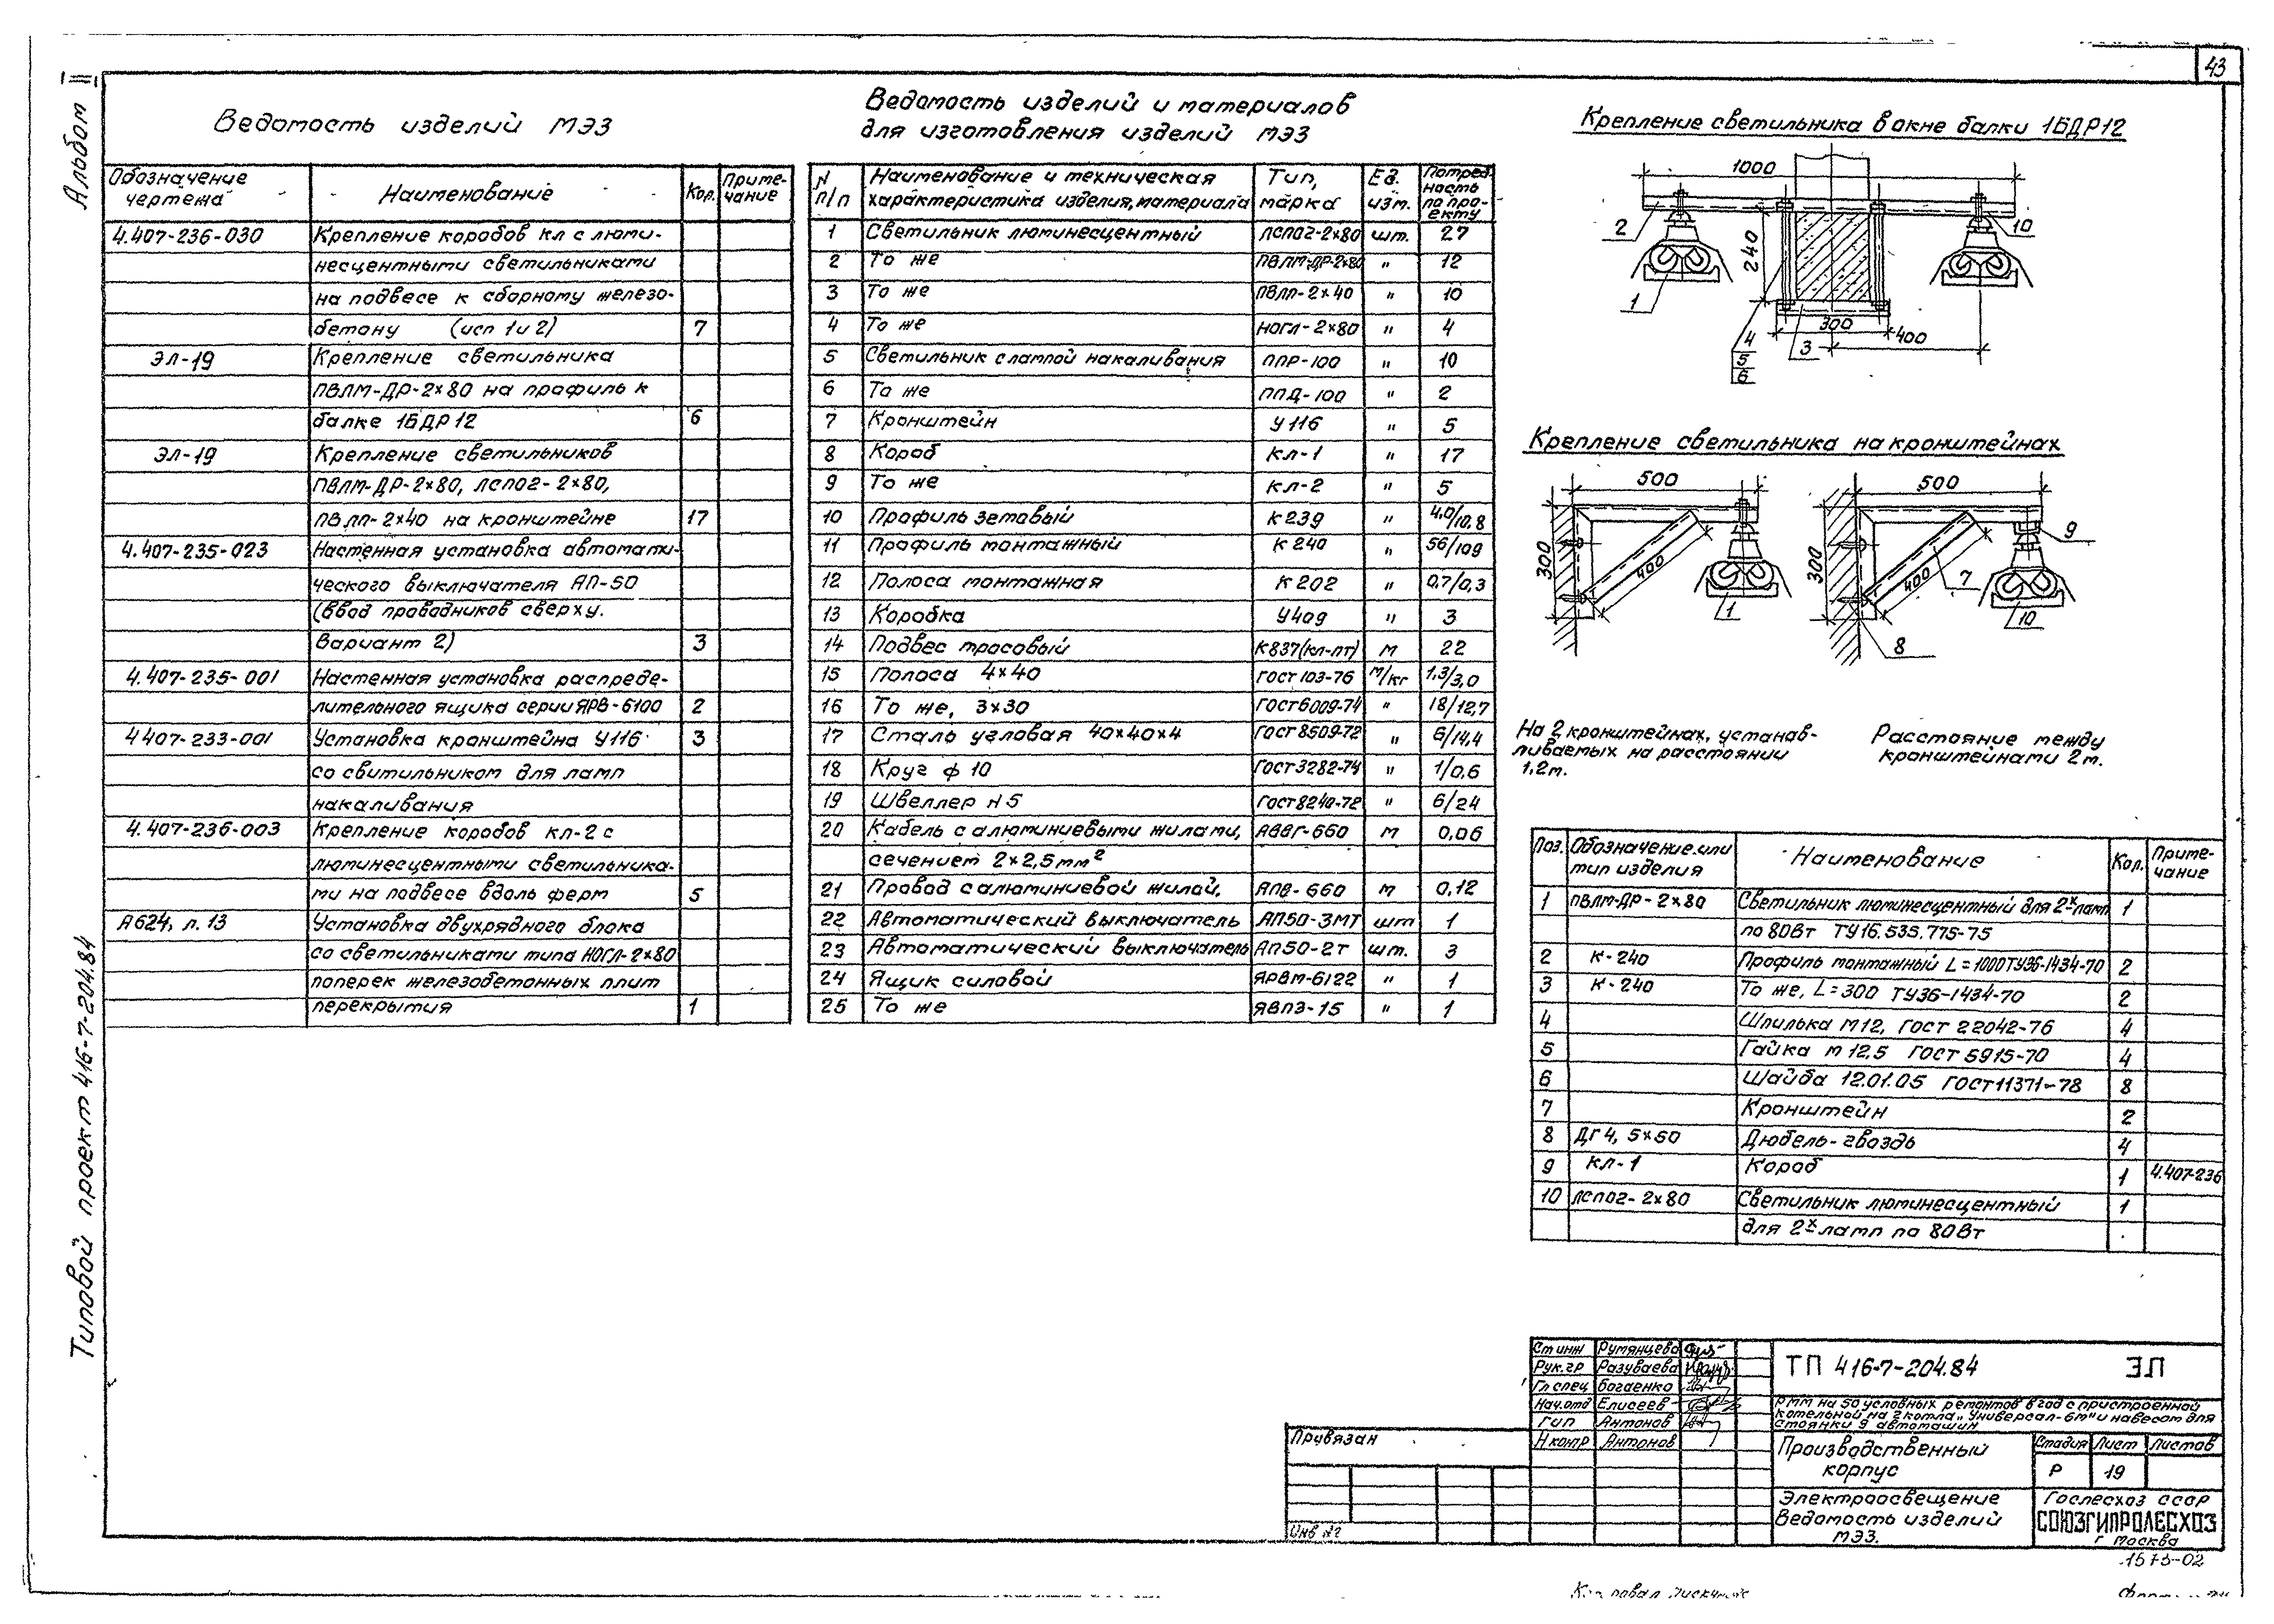 43
Альбом II
Типовой проект 416-7-204.84
Ведомость изделий МЭЗ
Обозначение чертежа | Наименование | Кол. | Примечание
4.407-236-030 | Крепление коробов кл с люми-
несцентными светильниками
на подвесе к сборному железо-
бетону (исп 1 и 2) | 7
ЭЛ-19 | Крепление светильника
ПВЛМ-ДР-2×80 на профиль к
балке 1БДР12 | 6
ЭЛ-19 | Крепление светильников
ПВЛМ-ДР-2×80, ЛСП02-2×80,
ПВЛП-2×40 на кронштейне | 17
4.407-235-023 | Настенная установка автомати-
ческого выключателя АП-50
(ввод проводников сверху.
Вариант 2) | 3
4.407-235-001 | Настенная установка распреде-
лительного ящика серии ЯРВ-6100 | 2
4407-233-001 | Установка кронштейна У116 | 3
со свитильником для ламп
накаливания
4.407-236-003 | Крепление коробов кл-2 с
люминесцентными светильника-
ми на подвесе вдоль ферм | 5
А624, л.13 | Установка двухрядного блока
со светильниками типа НОГЛ-2×80
поперек железобетонных плит
перекрытия | 1
Ведомость изделий и материалов
для изготовления изделий МЭЗ
N п/п | Наименование и техническая характеристика изделия, материала | Тип, марка | Ед. изм. | Потреб. ность по про-екту
1 | Светильник люминесцентный | ЛСП02-2×80 | шт. | 27
2 | То же | ПВЛМ-ДР-2×80 | " | 12
3 | То же | ПВЛП-2×40 | " | 10
4 | То же | НОГЛ-2×80 | " | 4
5 | Светильник с лампой накаливания | ППР-100 | " | 10
6 | То же | ППД-100 | " | 2
7 | Кронштейн | У116 | " | 5
8 | Короб | КЛ-1 | " | 17
9 | То же | КЛ-2 | " | 5
10 | Профиль зетовый | К239 | " | 4,0/10,8
11 | Профиль монтажный | К240 | " | 56/109
12 | Полоса монтажная | К202 | " | 0,7/0,3
13 | Коробка | У409 | " | 3
14 | Подвес тросовый | К837(кл-пт) | м | 22
15 | Полоса 4×40 | ГОСТ 103-76 | м/кг | 1,3/3,0
16 | То же, 3×30 | ГОСТ6009-74 | " | 18/12,7
17 | Сталь угловая 40×40×4 | ГОСТ 8509-72 | " | 6/14,4
18 | Круг ф 10 | ГОСТ3282-74 | " | 1/0,6
19 | Швеллер N5 | ГОСТ8240-72 | " | 6/24
20 | Кабель с алюминиевыми жилами, | АВВГ-660 | м | 0,06
сечением 2×2,5мм²
21 | Провод с алюминиевой жилой, | АПВ-660 | м | 0,12
22 | Автоматический выключатель | АП50-3МТ | шт | 1
23 | Автоматический выключатель | АП50-2Т | шт. | 3
24 | Ящик силовой | ЯРВМ-6122 | " | 1
25 | То же | ЯВПЗ-15 | " | 1
Крепление светильника в окне балки 1БДР12
1000
2
10
240
1
300
400
4
5
6
3
Крепление светильника на кронштейнах
500
500
300
400
1
300
400
9
7
10
8
На 2 кронштейнах, устанав-
ливаемых на расстоянии
1,2м.
Расстояние между
кронштейнами 2м.
Поз. | Обозначение или тип изделия | Наименование | Кол. | Приме-чание
1 | ПВЛМ-ДР-2×80 | Светильник люминесцентный для 2х ламп | 1
по 80Вт ТУ16.535.775-75
2 | К-240 | Профиль монтажный L=1000 ТУ36-1434-70 | 2
3 | К-240 | То же, L=300 ТУ36-1434-70 | 2
4 | Шпилька М12, ГОСТ 22042-76 | 4
5 | Гайка м 12.5 ГОСТ 5915-70 | 4
6 | Шайба 12.01.05 ГОСТ11371-78 | 8
7 | Кронштейн | 2
8 | ДГ4, 5×50 | Дюбель-гвоздь | 4
9 | КЛ-1 | Короб | 1 | 4.407-236
10 | ЛСП02-2×80 | Светильник люминесцентный | 1
для 2х ламп по 80Вт
Ст инж | Румянцева
Рук.гр | Разуваева
Гл спец | Богаенко
Нач.отд | Елисеев
ГИП | Антонов
Н контр | Антонов
Привязан
Инв №
ТП 416-7-204.84 ЭЛ
РММ на 50 условных ремонтов в год с пристроенной
котельной на 2 котла „Универсал-6м" и навесом для
стоянки 9 автомашин
Производственный
корпус
Стадия | Лист | Листов
Р | 19
Электроосвещение
Ведомость изделий
МЭЗ.
Гослесхоз СССР
СОЮЗГИПРОЛЕСХОЗ
г Москва
1575-02